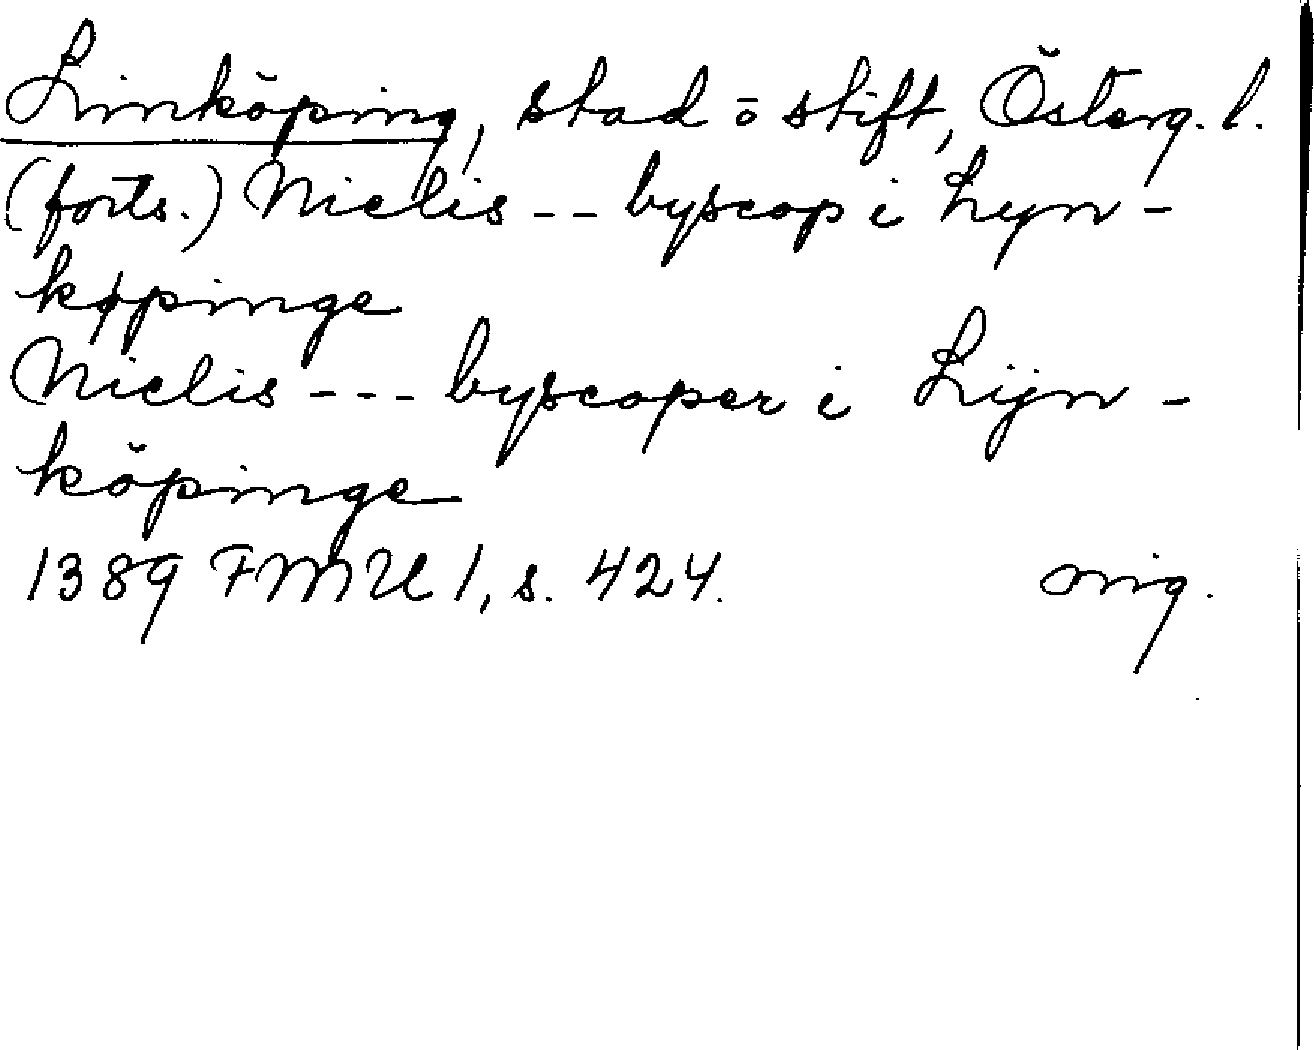 Linköping, stad o stift, Österg. l.
(forts.) Niclis -- byscop i Lyn-
køpinge
Niclis --- byscoper i Lijn-
köpinge
1389 FMU 1, s. 424. orig.